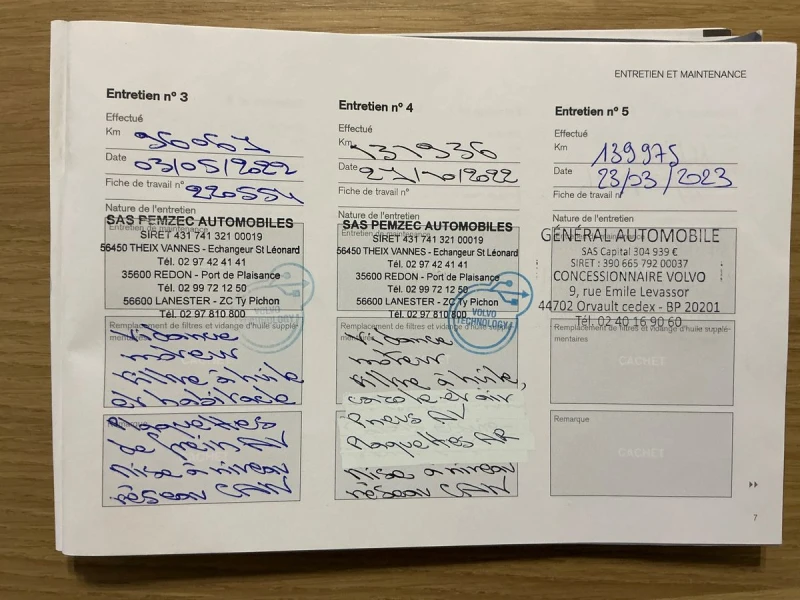 ENTRETIEN ET MAINTENANCE
Entretien nº 3
Effectué
Km 96067
Date 03/05/2022
Fiche de travail nº 220554
Nature de l'entretien
Entretien de maintenance
SAS PEMZEC AUTOMOBILES
SIRET 431 741 321 00019
56450 THEIX VANNES - Echangeur St Léonard
Tél. 02 97 42 41 41
35600 REDON - Port de Plaisance
Tél. 02 99 72 12 50
56600 LANESTER - ZC Ty Pichon
Tél. 02 97 810 800
VOLVO
TECHNOLOGY
Remplacement de filtres et vidange d'huile supplé-
mentaires
Vidange
moteur
filtre à huile
et habitacle
Remarque
Plaquettes
de frein AV
mise à niveau
réseau CAN
Entretien nº 4
Effectué
Km 131936
Date 27/10/2022
Fiche de travail nº
Nature de l'entretien
Entretien de maintenance
SAS PEMZEC AUTOMOBILES
SIRET 431 741 321 00019
56450 THEIX VANNES - Echangeur St Léonard
Tél. 02 97 42 41 41
35600 REDON - Port de Plaisance
Tél. 02 99 72 12 50
56600 LANESTER - ZC Ty Pichon
Tél. 02 97 810 800
VOLVO
TECHNOLOGY
Remplacement de filtres et vidange d'huile supplé-
Vidange
moteur
filtre à huile,
et air
Pneus AV
Plaquettes AR
mise à niveau
réseau CAN
Entretien nº 5
Effectué
Km 139975
Date 23/03/2023
Fiche de travail n
Nature de l'entretien
GÉNÉRAL AUTOMOBILE
SAS Capital 304 939 €
SIRET : 390 665 792 00037
CONCESSIONNAIRE VOLVO
9, rue Emile Levassor
44702 Orvault cedex - BP 20201
Tél. 02 40 16 90 60
Remplacement de filtres et vidange d'huile supplé-
mentaires
CACHET
Remarque
CACHET
7